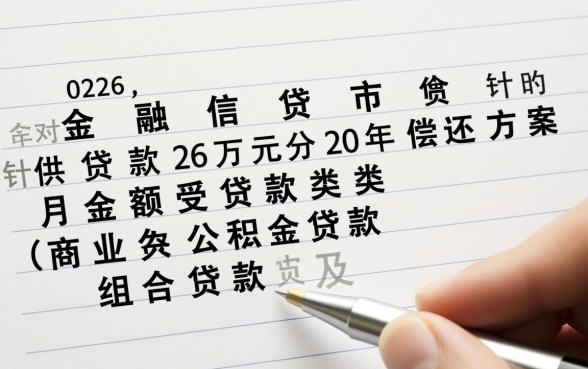 0226,
金融信贷市 针的
对
针供贷款26万元分20年偿还方案
月金额受贷款类类
(商业 公积金贷款
组合贷款 及